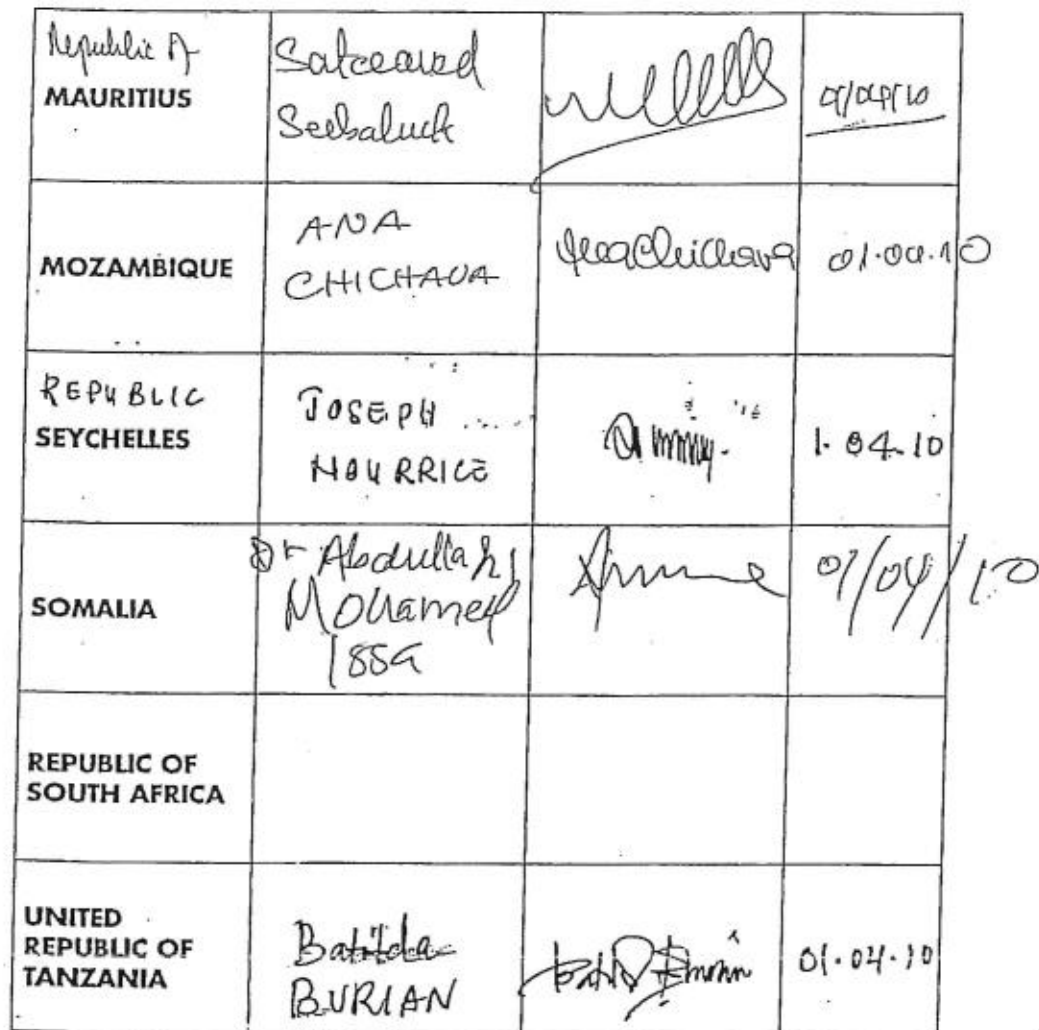 Republic of
MAURITIUS
Satceaved
Seebaluck
MOZAMBIQUE
ANA
CHICHAVA
AnaChichava
01.04.10
REPUBLIC
SEYCHELLES
JOSEPH
NOURRICE
1.04.10
SOMALIA
Dr Abdullahi
Mohamed
ISSA
01/04/10
REPUBLIC OF
SOUTH AFRICA
UNITED
REPUBLIC OF
TANZANIA
Batilda
BURIAN
01.04.10